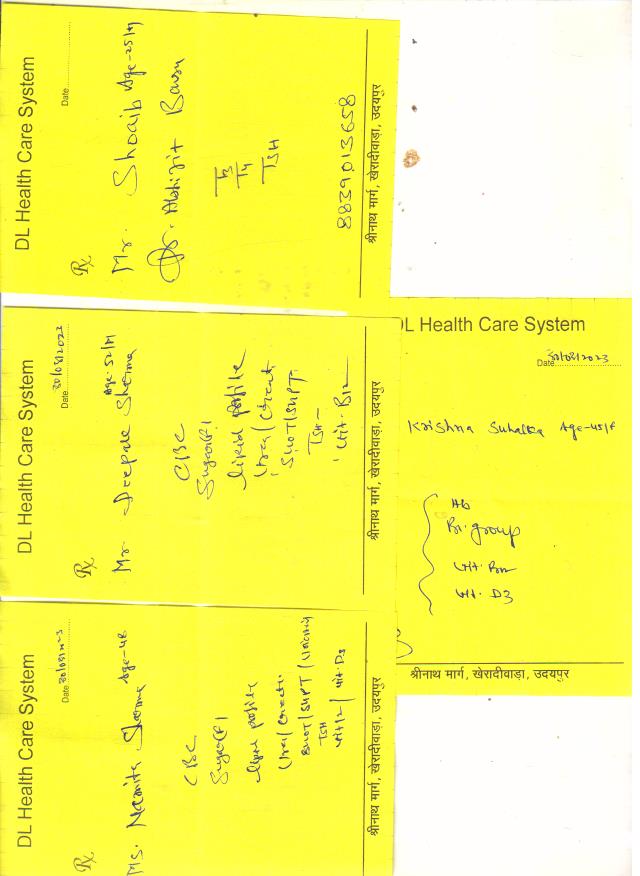 DL Health Care System
Date
Rx
Mr. Shoaib Age-25/M
Dr. Abhijit Basu
T3
T4
TSH
8839013658
श्रीनाथ मार्ग, खेरादीवाड़ा, उदयपुर
DL Health Care System
Date 30/08/2023
Rx
Mr Deepak Sharma Age-52/M
CBC
Sugar(F)
lipid profile
Urea/Creat.
SGOT/SGPT.
TSH-
Vit-B12
श्रीनाथ मार्ग, खेरादीवाड़ा, उदयपुर
DL Health Care System
Date 30/08/2023
Rx
Ms. Namita Sharma Age-48
CBC
Sugar(F)
lipid profile
Urea/Creat.
SGOT/SGPT/
TSH
Vit-D3
श्रीनाथ मार्ग, खेरादीवाड़ा, उदयपुर
DL Health Care System
Date 30/08/2023
Krishna Suhalka Age-45/F
Hb
Bl. group
Vit. B12
Vit. D3
श्रीनाथ मार्ग, खेरादीवाड़ा, उदयपुर